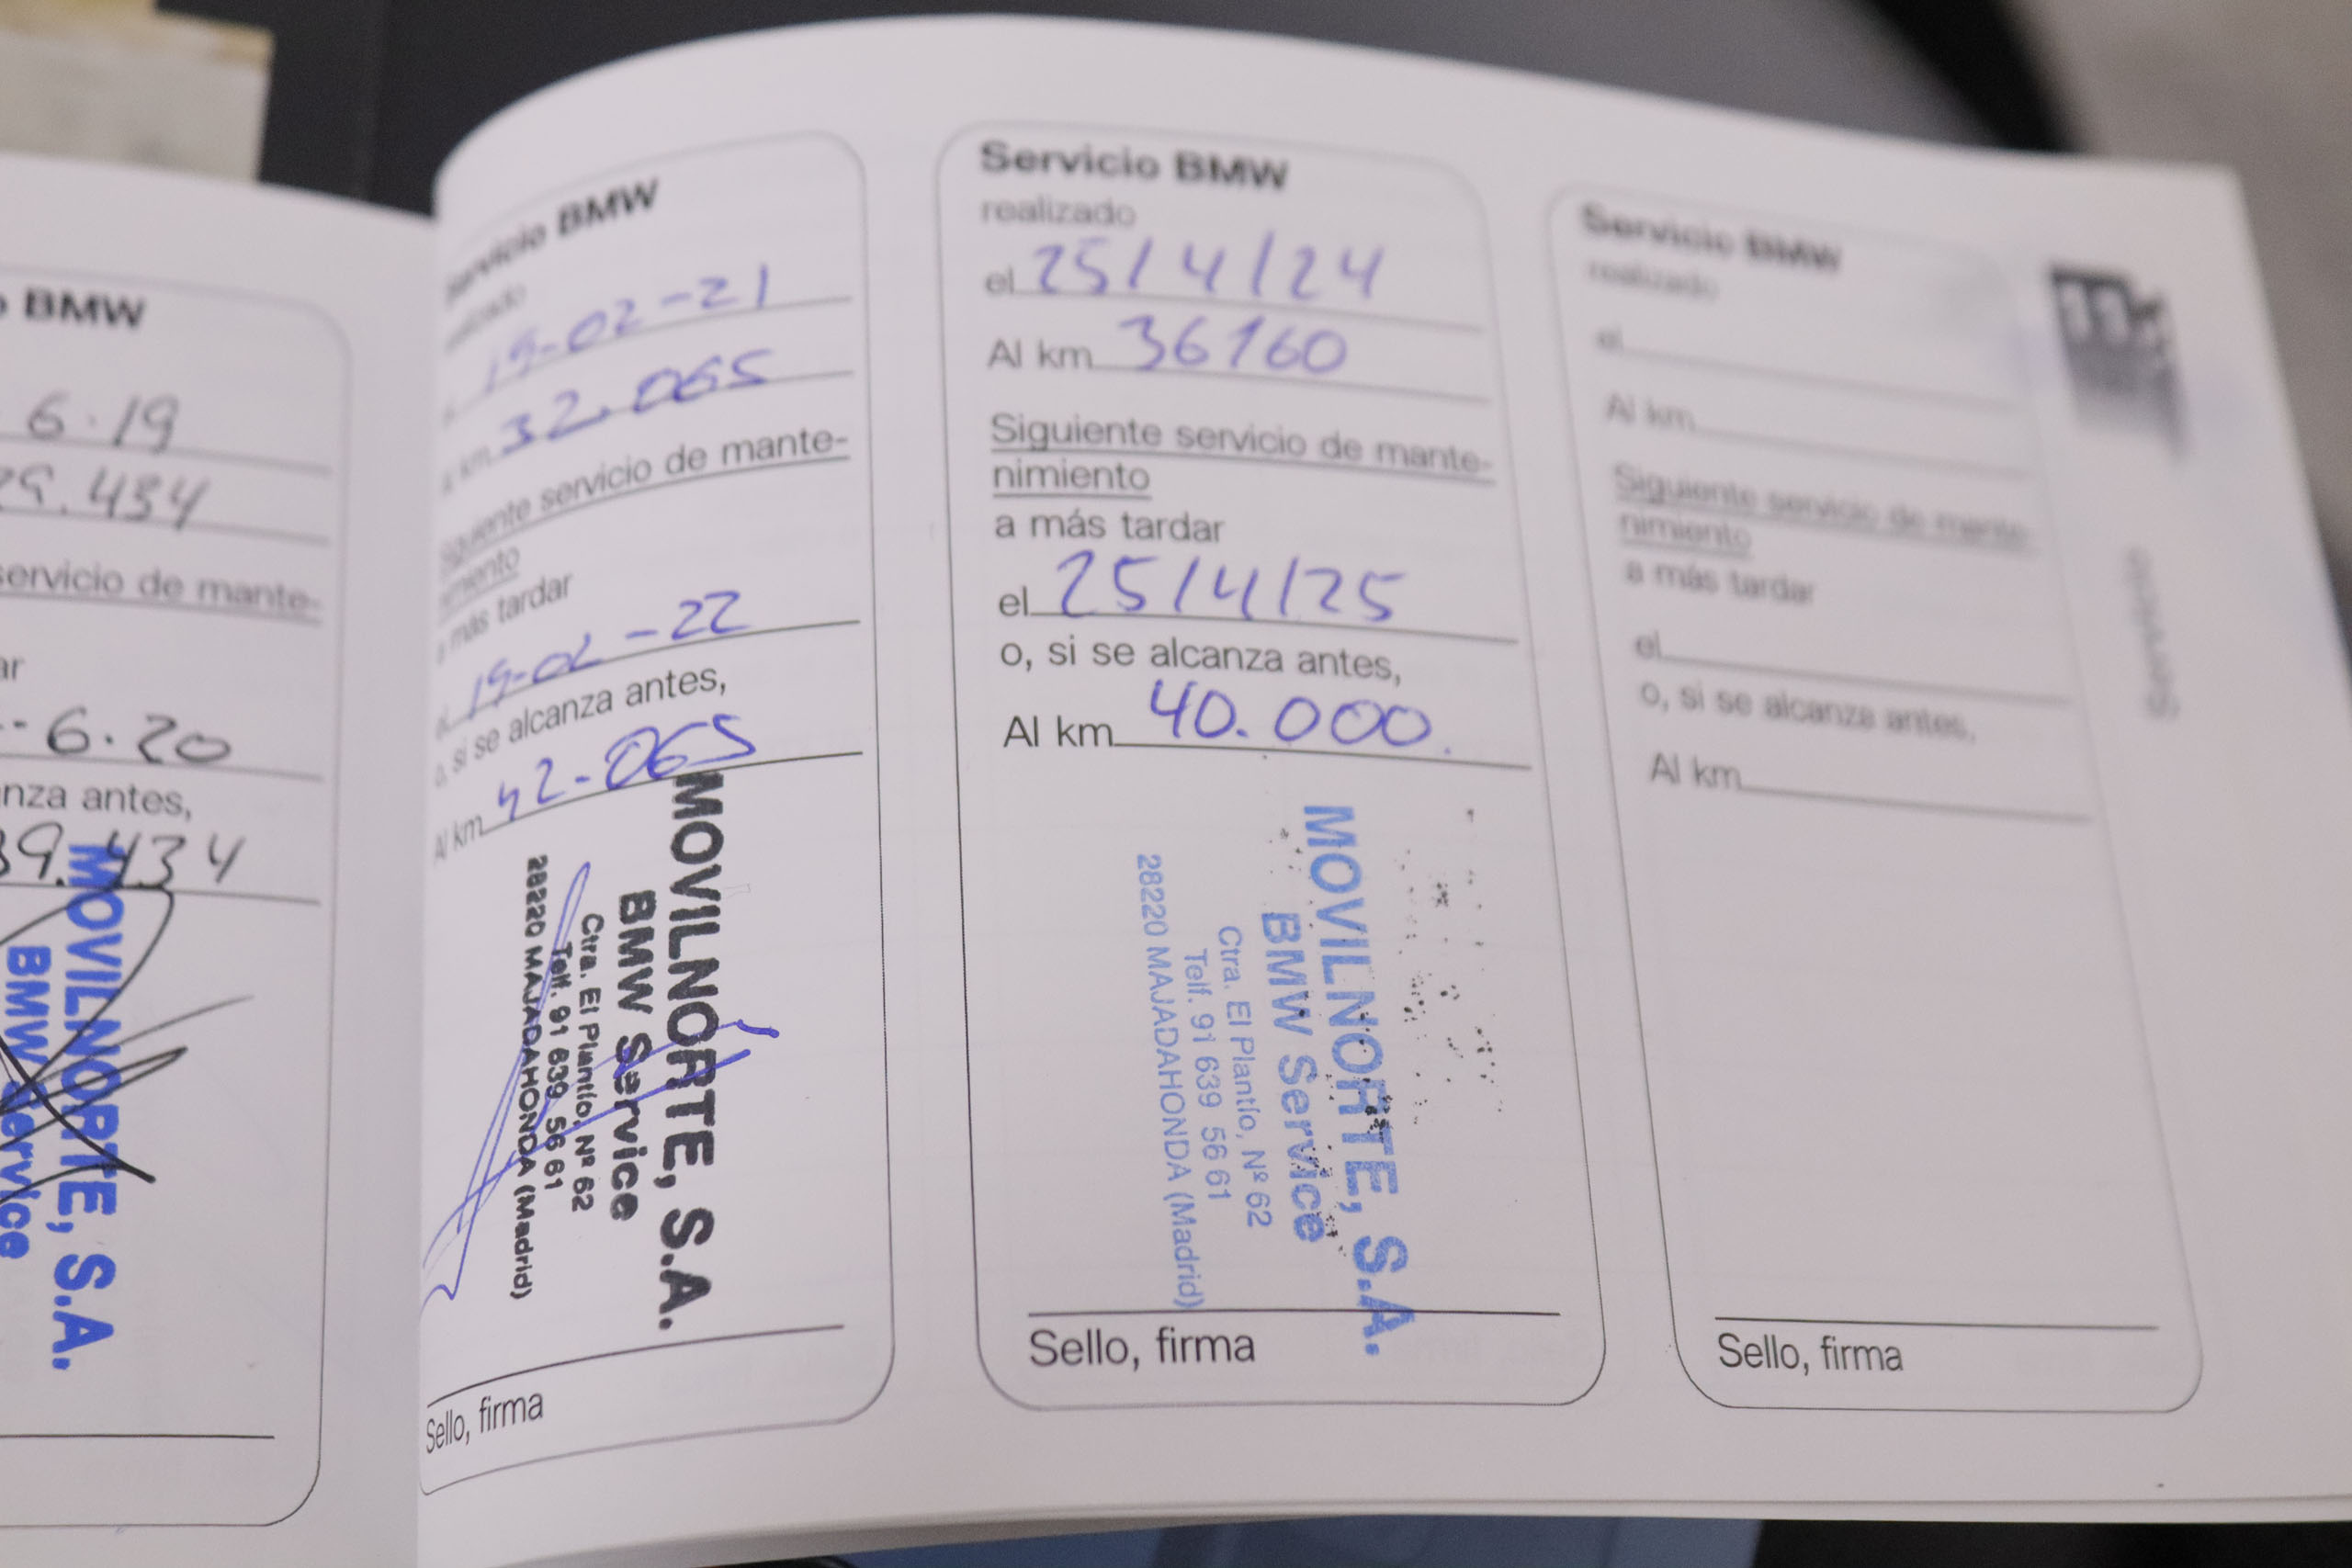 BMW
6.19
29.434
servicio de mante-
ar
6.20
nza antes,
39.434
MOVILNORTE, S.A.
BMW Service
Servicio BMW
realizado
el 19-02-21
Al km 32.065
Siguiente servicio de mante-
nimiento
a más tardar
el 19-02-22
o, si se alcanza antes,
Al km 42-065
MOVILNORTE, S.A.
BMW Service
Ctra. El Plantío, Nº 62
Telf. 91 639 56 61
28220 MAJADAHONDA (Madrid)
Sello, firma
Servicio BMW
realizado
el 25/4/24
Al km 36160
Siguiente servicio de mante-
nimiento
a más tardar
el 25/4/25
o, si se alcanza antes,
Al km 40.000.
MOVILNORTE, S.A.
BMW Service
Ctra. El Plantío, Nº 62
Telf. 91 639 56 61
28220 MAJADAHONDA (Madrid)
Sello, firma
Servicio BMW
realizado
el
Al km
Siguiente servicio de mante-
nimiento
a más tardar
el
o, si se alcanza antes,
Al km
Sello, firma
Servicio